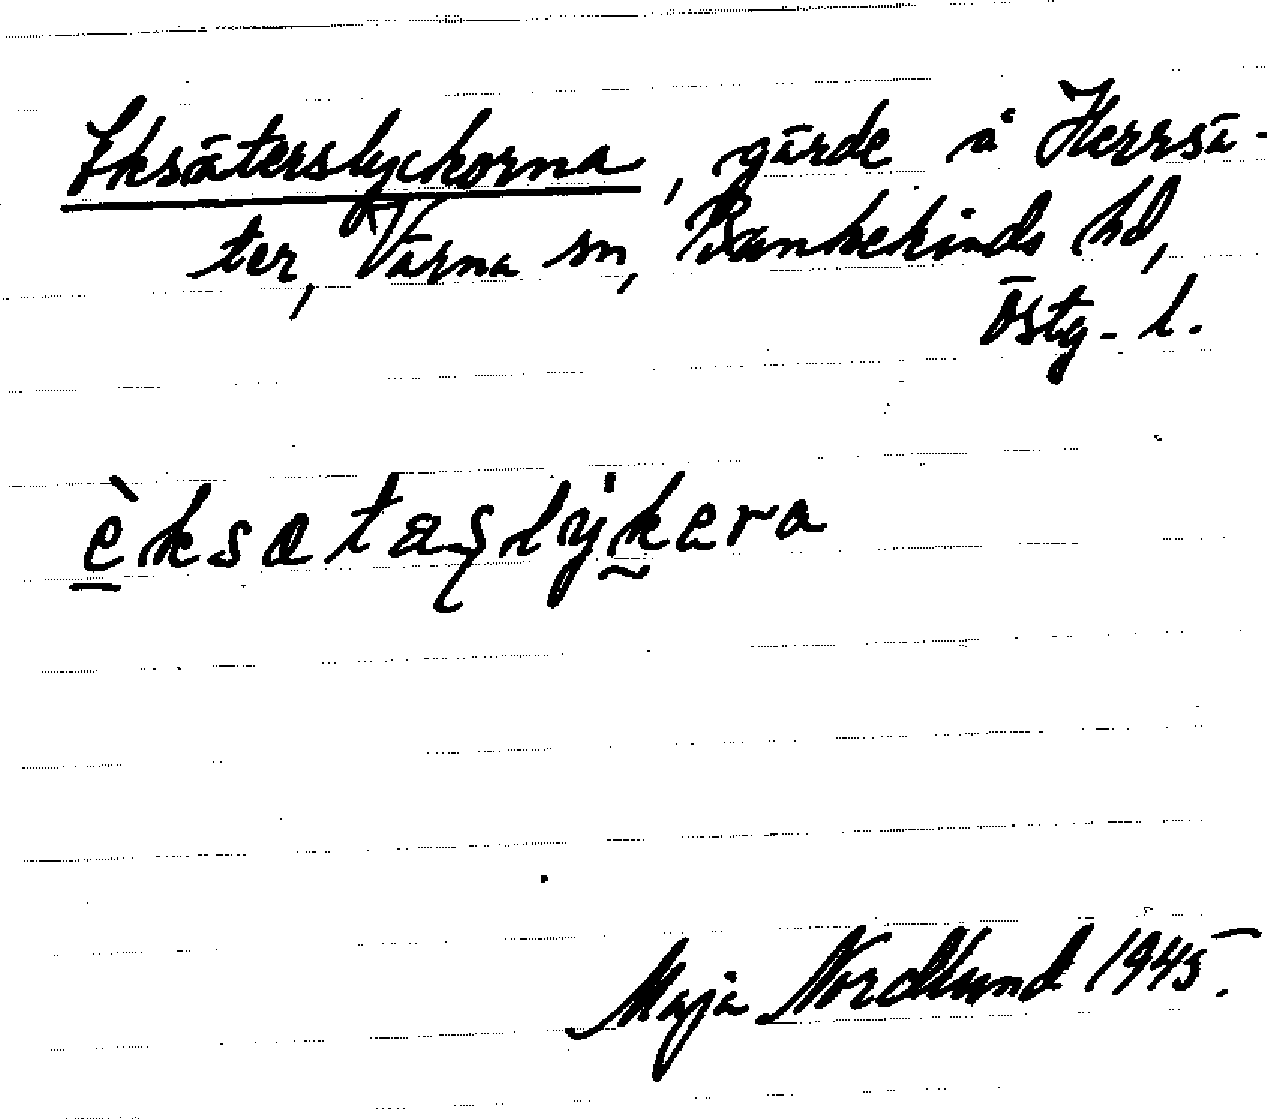 Eksäterslyckorna, gärde å Herrsä-
ter, Värna sn, Bankekinds hd,
Östg. l.
èksataʂlẏkera
Maja Nordlund 1945.